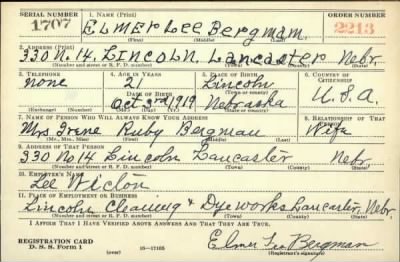 SERIAL NUMBER 1. NAME (Print) ORDER NUMBER
1707 ELMER Lee Bergman. 2213
(First) (Middle) (Last)
2. ADDRESS (Print)
330 No. 14. LINCOLN, Lancaster Nebr.
(Number and street or R. F. D. number) (Town) (County) (State)
3. TELEPHONE 4. AGE IN YEARS 5. PLACE OF BIRTH 6. COUNTRY OF CITIZENSHIP
none 21 Lincoln
DATE OF BIRTH (Town or county)
Oct 3rd 1919 Nebraska U.S.A.
(Exchange) (Number) (Mo.) (Day) (Yr.) (State or country)
7. NAME OF PERSON WHO WILL ALWAYS KNOW YOUR ADDRESS 8. RELATIONSHIP OF THAT PERSON
Mrs Irene Ruby Bergman Wife
(Mr., Mrs., Miss) (First) (Middle) (Last)
9. ADDRESS OF THAT PERSON
330 No 14 Lincoln Lancaster Nebr.
(Number and street or R. F. D. number) (Town) (County) (State)
10. EMPLOYER'S NAME
Lee
11. PLACE OF EMPLOYMENT OR BUSINESS
Lincoln Cleaning & Dye works Lancaster, Nebr.
(Number and street or R. F. D. number) (Town) (County) (State)
I AFFIRM THAT I HAVE VERIFIED ABOVE ANSWERS AND THAT THEY ARE TRUE.
REGISTRATION CARD
D. S. S. Form 1 (over) 16—17105 Elmer Lee Bergman
(Registrant's signature)